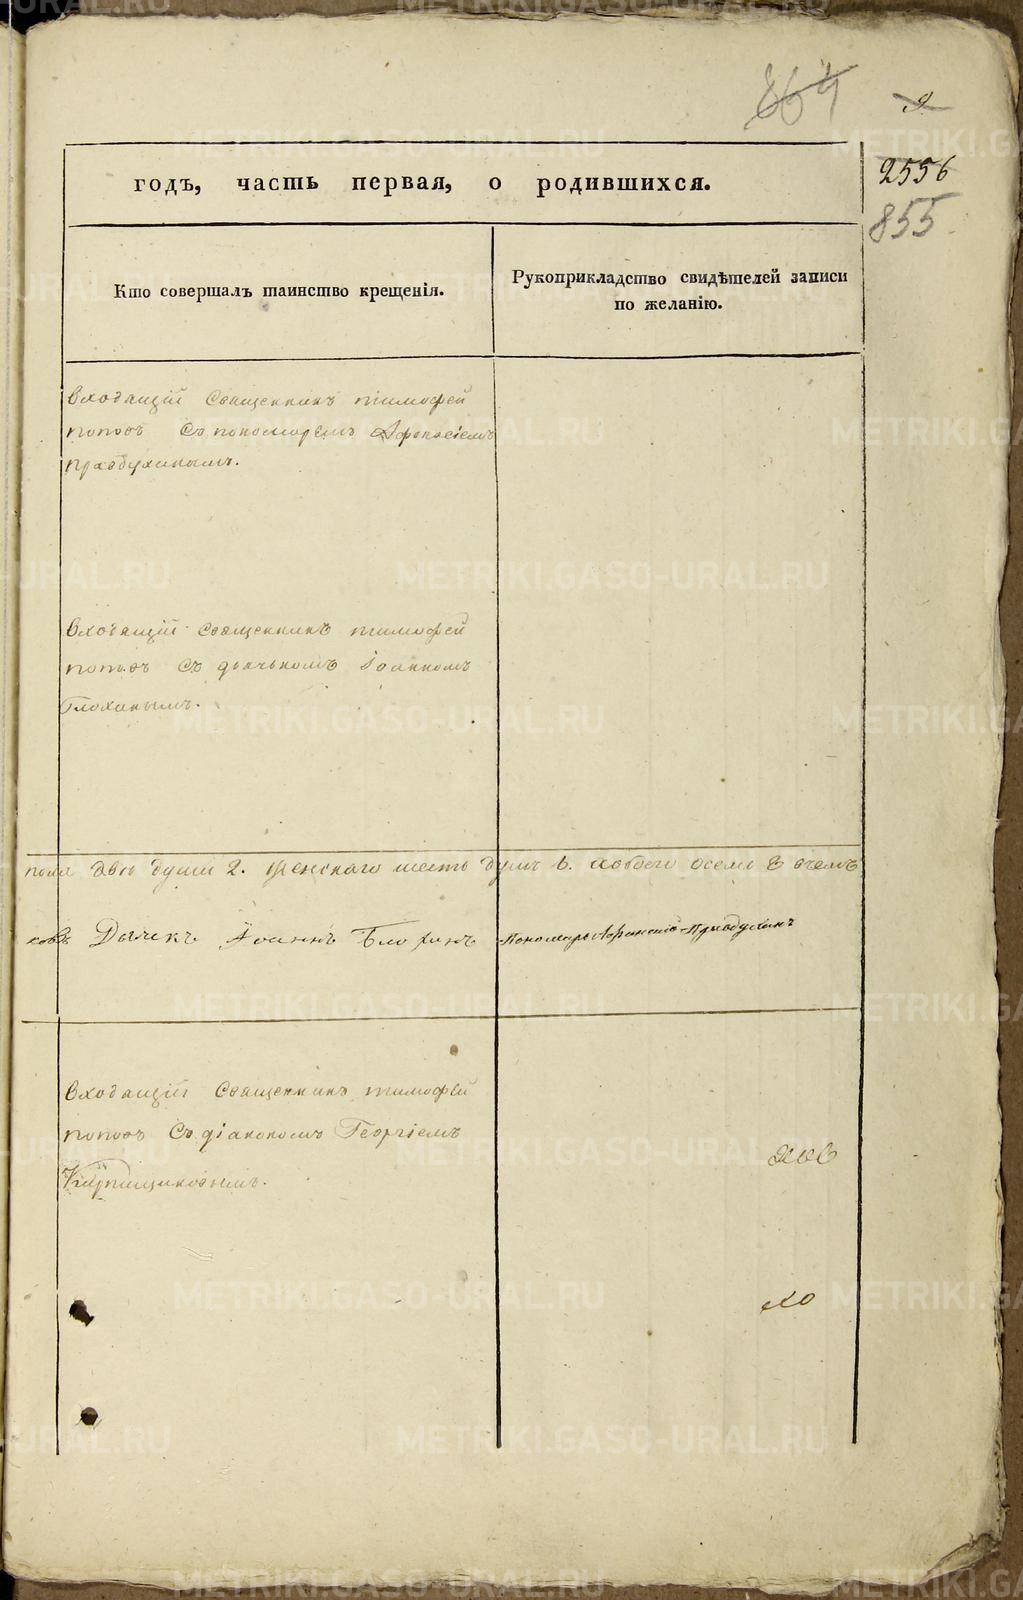 864
9
2556
855
годъ, часть первая, о родившихся.
Кто совершалъ таинство крещенія.
Рукоприкладство свидѣтелей записи
по желанію.
Входящій Священникъ тимофей
поповъ Съ пономаремъ Афонасіемъ
Входящій Священникъ тимофей
поповъ Съ дьячькомъ Іоанномъ
Глохинымъ.
пола двѣ души 2. женскаго шесть душъ 6. Аобоего осемь 8 вчемъ
Дьячекъ Іоаннъ
Пономарь Афанасій
Входящій Священникъ тимофей
поповъ Съ діакономъ Георгіемъ
METRIKI.GASO-URAL.RU